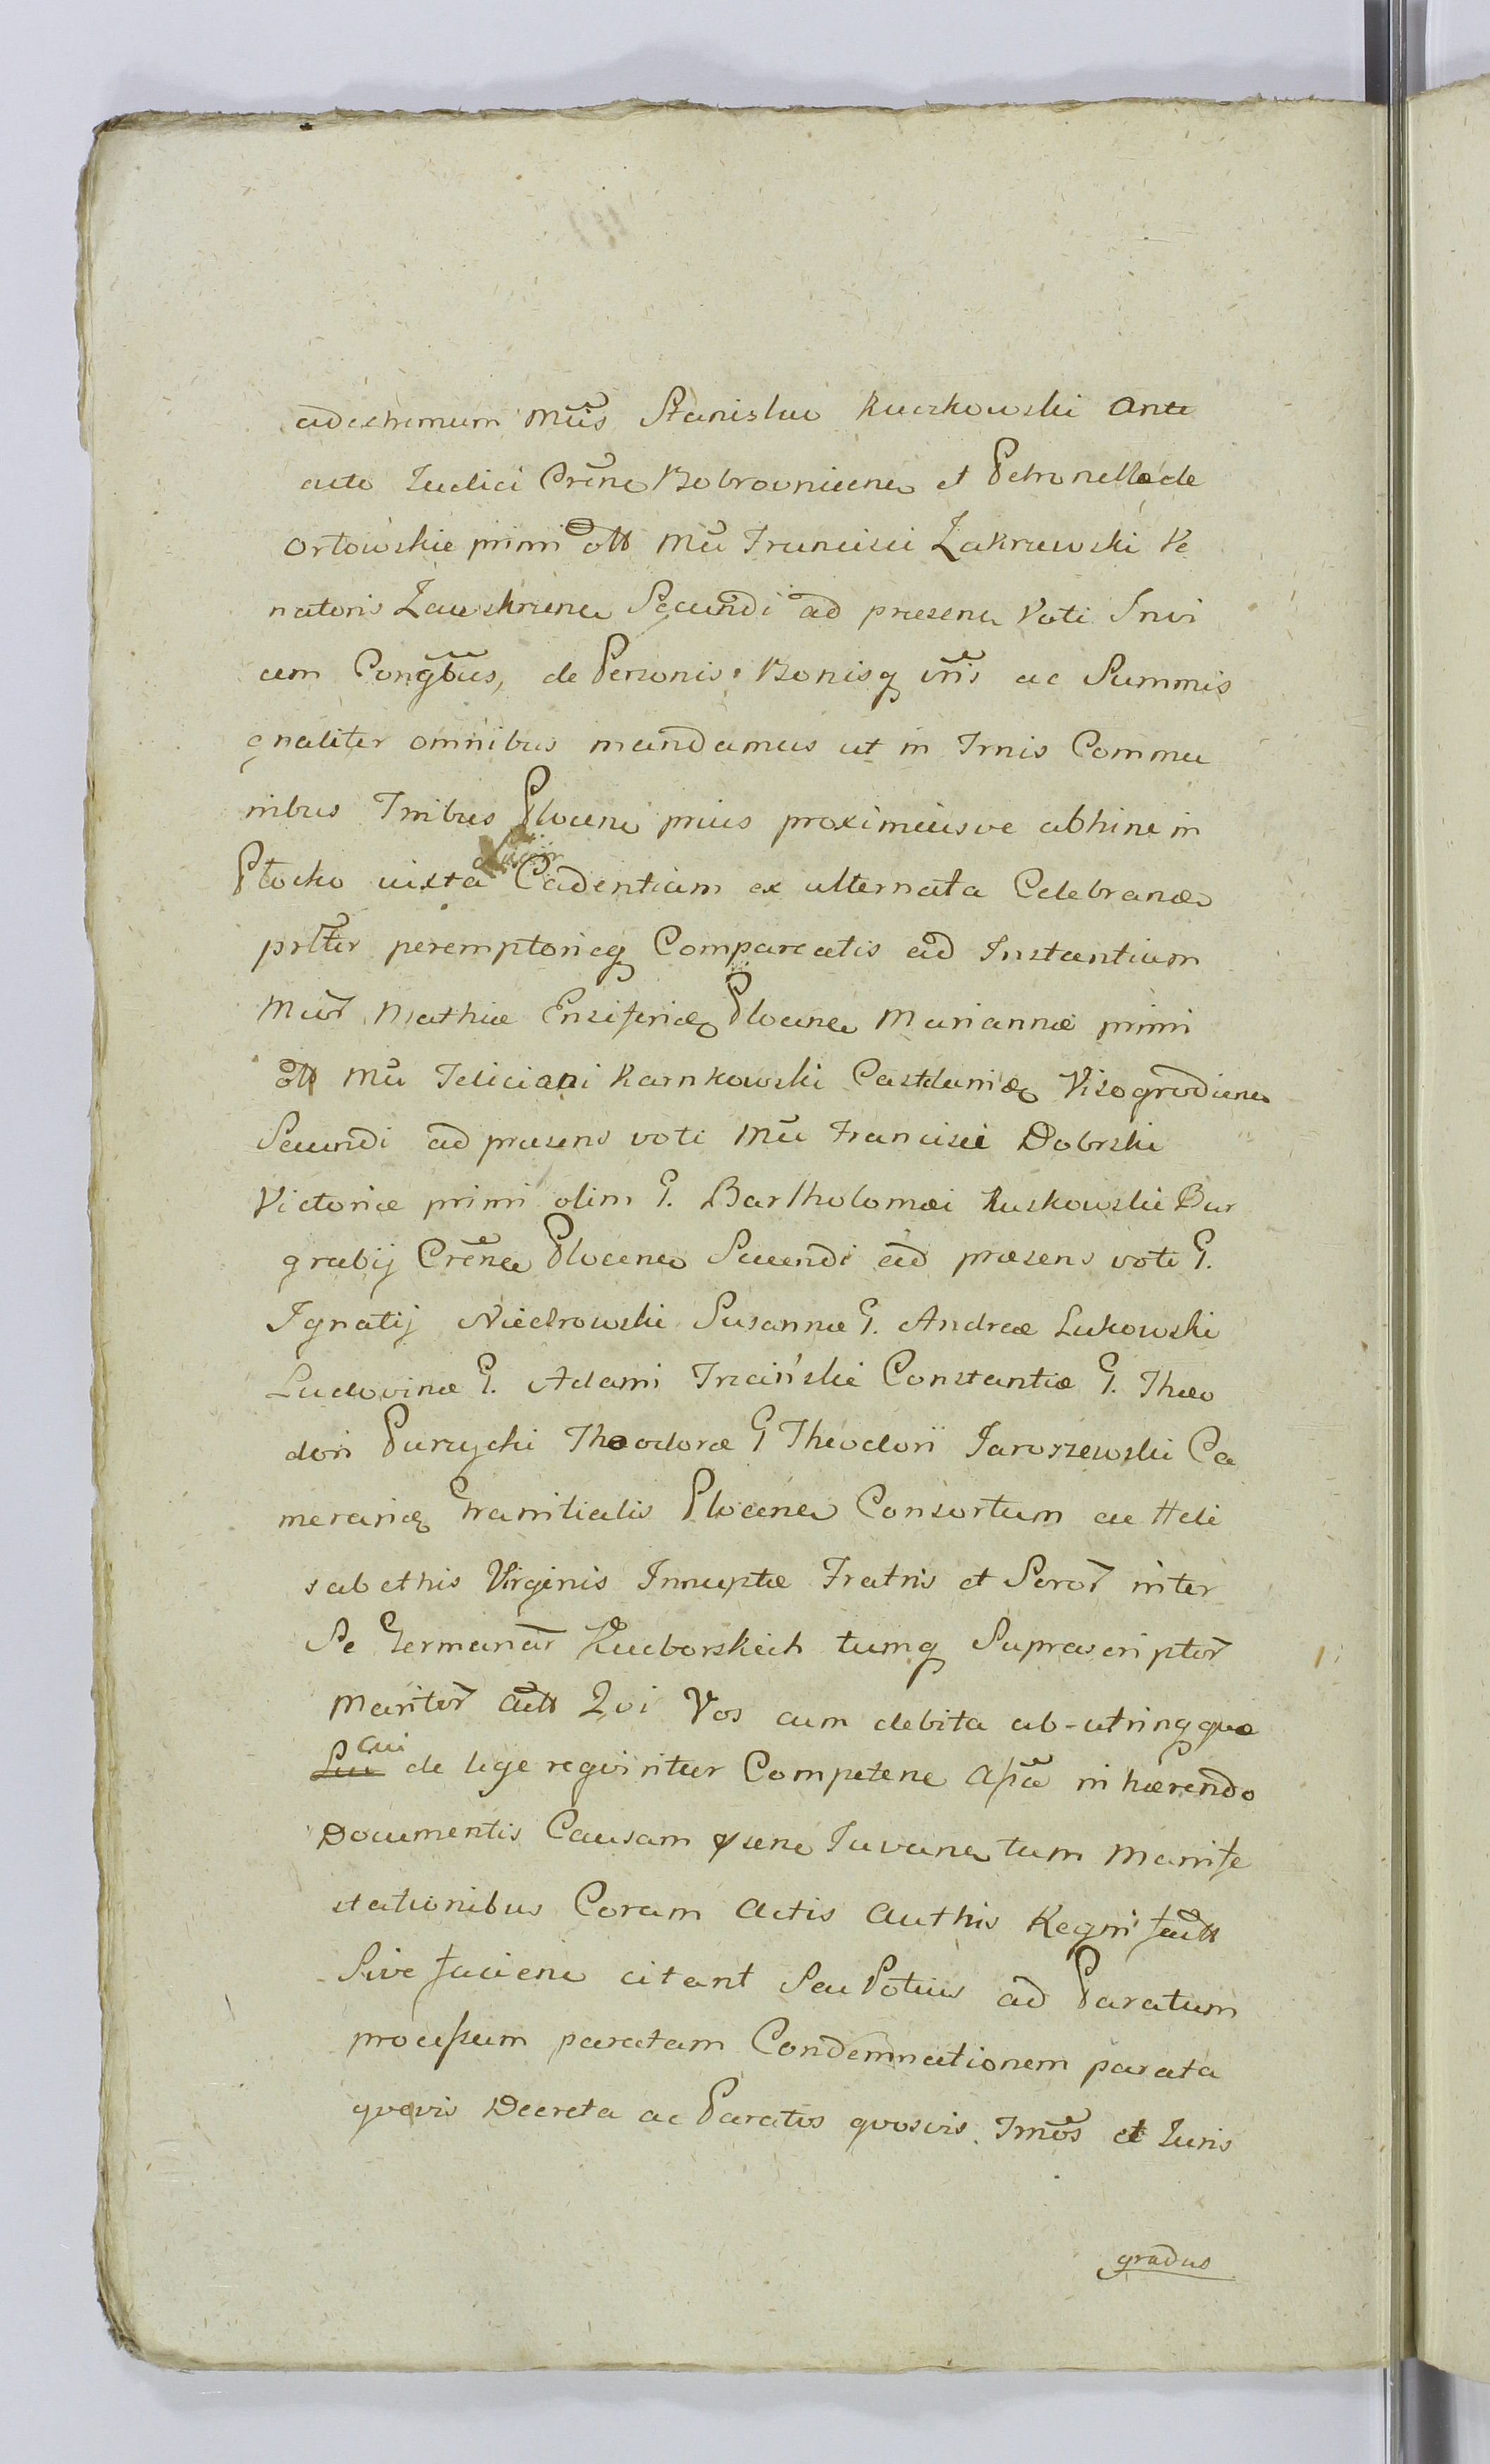 ad extremum Mu͂s Stanislao Ruszkowski Ante
acto Iudici Cre͂ne Bobrovnicen et Petronella de
Orłowskie primi olt Mu͂ Francisci Zakrzewski Ve
natoris Zawskrinen Secundi ad praesens Voti Invi
cem Cong͂bus, de Personis Bonisq vr͂is ac Summis
gnaliter omnibus mandamus ut in Trnis Commu
nibus Tribus Plocen prius proximiusve abhinc in
Płocko iuxta Cadentiam ex alternata Celebranđ
prltter peremptorieq Compareatis ad Instantiam
Mu͂r Mathiæ Ensiferiđ Plocen Mariannæ primi
olt Mu͂ Feliciani Karnkowski Castellaniđ Visogrodien
Secundi ad praesens voti Mu͂ Francisci Dobrski
Victoriæ primi olim G. Bartholomæi Ruskowski Bur
grabij Cre͂n Plocen Secundi ad præsens voti G.
Ignatij Niedrowski Susannæ G. Andreæ Lukowski
Ludovinæ G. Adami Trzciński Constantiæ G. Theo
dori Purzycki Theodoræ G Theodori Jaroszewski Ca
merariđ Granitialis Plocen Consortum ac Heli
sabethis Virginis Innuptæ Fratris et Soror͂ inter
Se Germanar͂ Zuborskich tumq Suprascriptor͂
Maritor͂ Actt Qvi Vos cum debita ab-utrinqque
cui
de lege reqviritur Competen Asc͂a inhærendo
Documentis Causam psen Iuvan tum Manife
stationibus Coram Actis Authis Regni factt
Sive facien citant Seu Potius ad Paratum
processum paratam Condemnationem parata
qvævis Decreta ac Paratos qvosvis Trno͂s et Iuris
gradus